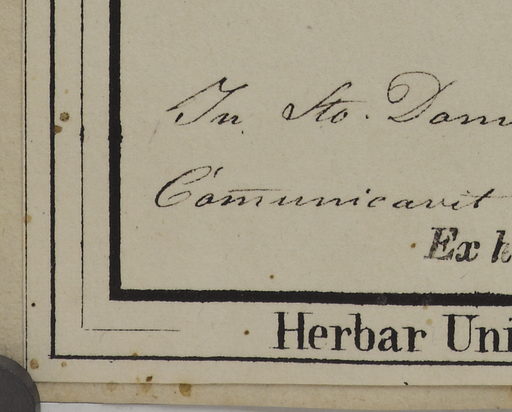 In Sto. Dom
Com̅unicavit
Ex h
Herbar Uni